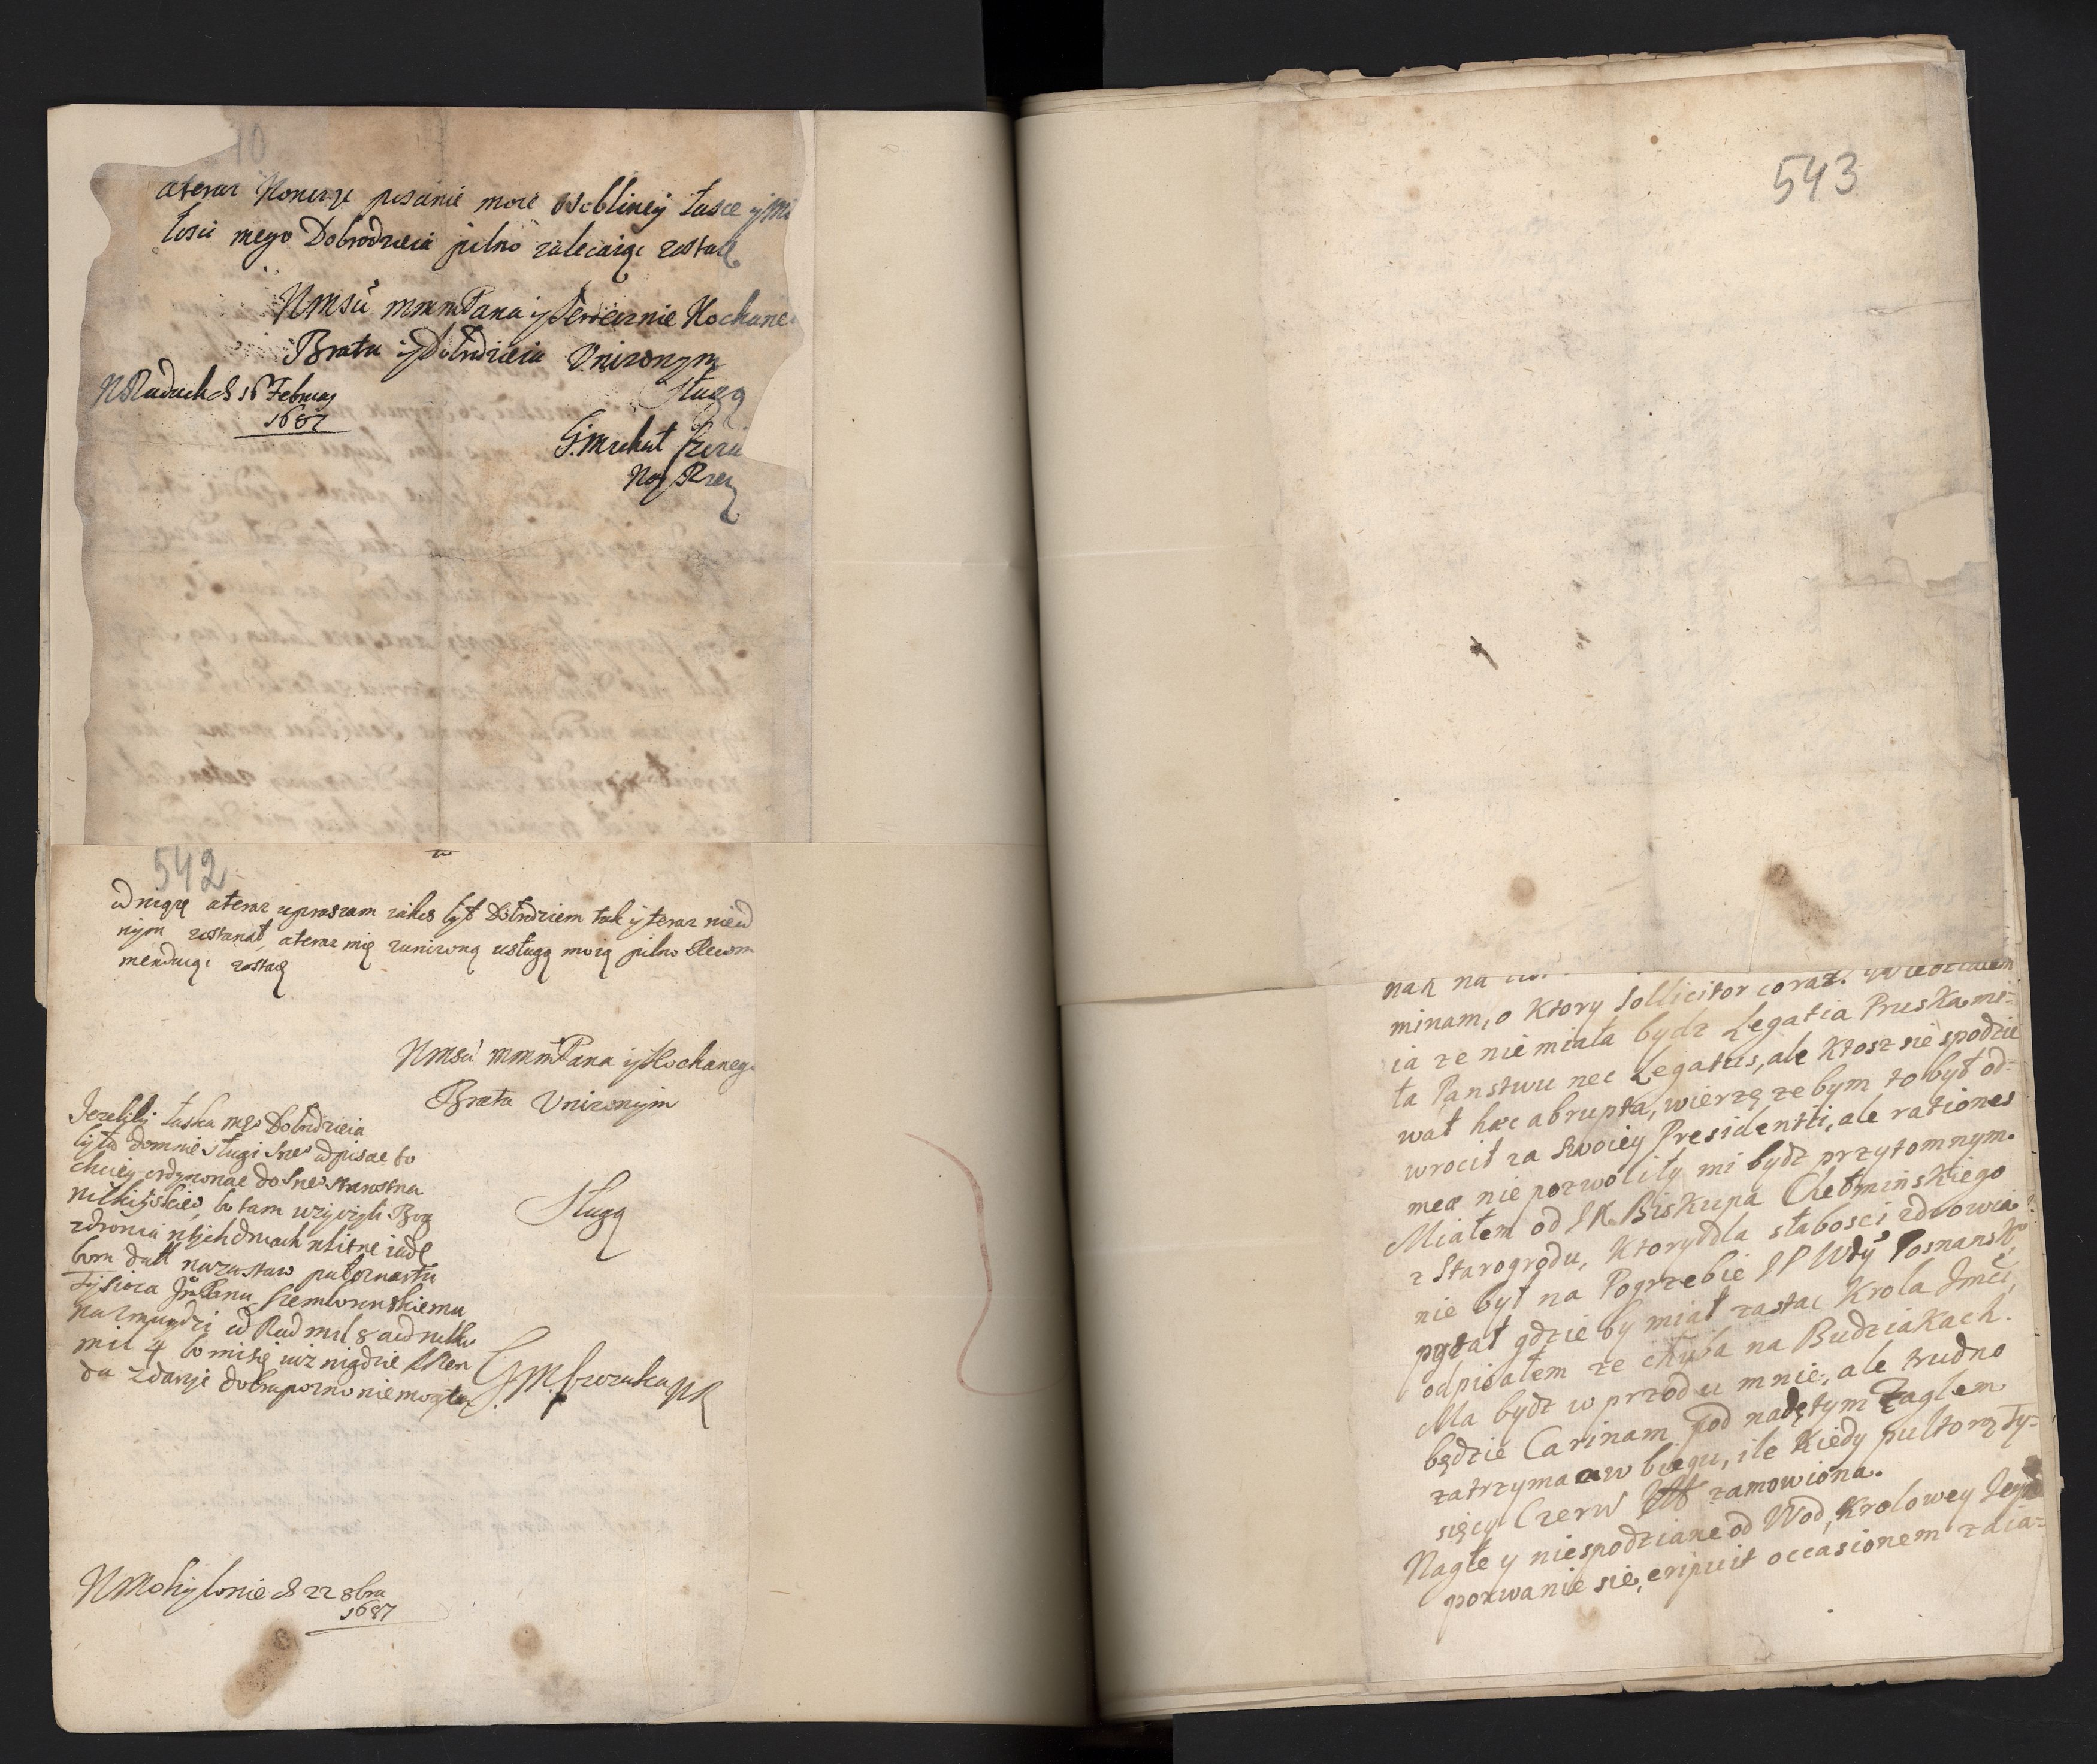 10
ateraz Koncze pisanie moie osobliwey łasce y Mi
łosci mego Dobrodzieia pilno zalecaiąc zostaię
WMsci mmmPana y Serdecznie Kochane
Brata y Dobrodzieia Unizonym
Sługą
W Rudach d 16 February
1687
G. Michał
542
ateraz upraszam iakos był Dobrodziem tak y teraz nieod
nym zostawał, ateraz mię z unizoną usługą moią pilno Recom
menduiąc zostaię
WMsci mmmPana y Kochanego
Brata Unizonym
Sługą
Jezeliby łaska mego Dobrodzieia
była domnie sługi swe odpisac to
chciey ordynowac do
bo tam uzyczyli Bog
zdrowia w tych dniach
bom dał na zastaw pułcznasta
Tysioca Panu
na Zmuydzi od Rud mil 8
mil 4 bo mi się iuz nigdzie
W Mohylowie d 22 8bra
1687
543
nak na
minam, o Ktory sollicitor coraz. Wiedziałem
ia ze nie miała bydz Legatia Pruska mi-
ła Panstwu nec Legatus, ale Ktosz sie spodzie
wał hæc abrupta, wierzę ze bym to był od-
wrocił za swoiey Presidentii, ale rationes
meæ nie pozwoliły mi bydz przytomnym.
Miałem od Biskupa Chełminskiego
z Starogrodu, Ktory dla słabosci zdrowia
nie był na Pogrzebie JP Wdy Posnansko
pytał gdzie by miał zastac Krola Jmci,
odpisałem ze chyba na Budziakach.
Ma bydz w przod u mnie, ale trudno
będzie Carinam pod nadętym Zaglem
zatrzymac w biegu, ile Kiedy pułtorą Ty-
sięcy Czerw zamowiona.
Nagłe y niespodziane od Wod, Krolowey Jey
porwanie sie, eripuit occasionem zaia-